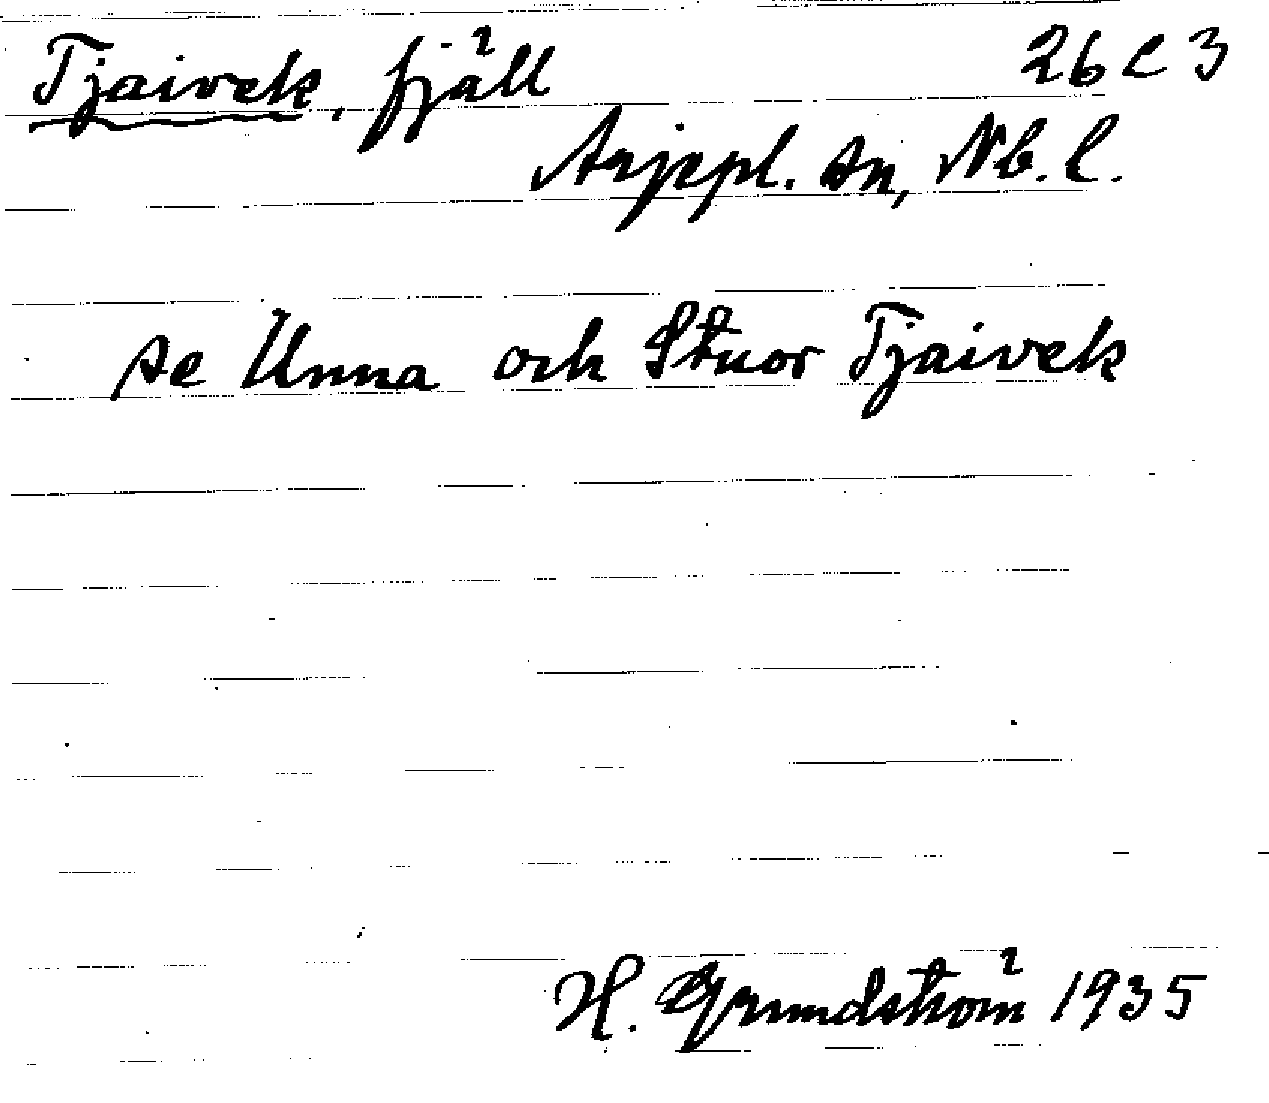 Tjaivek, fjäll 26 C 3
Arjepl. sn, Nb. l.
se Unna och Stuor Tjaivek
H. Grundström 1935